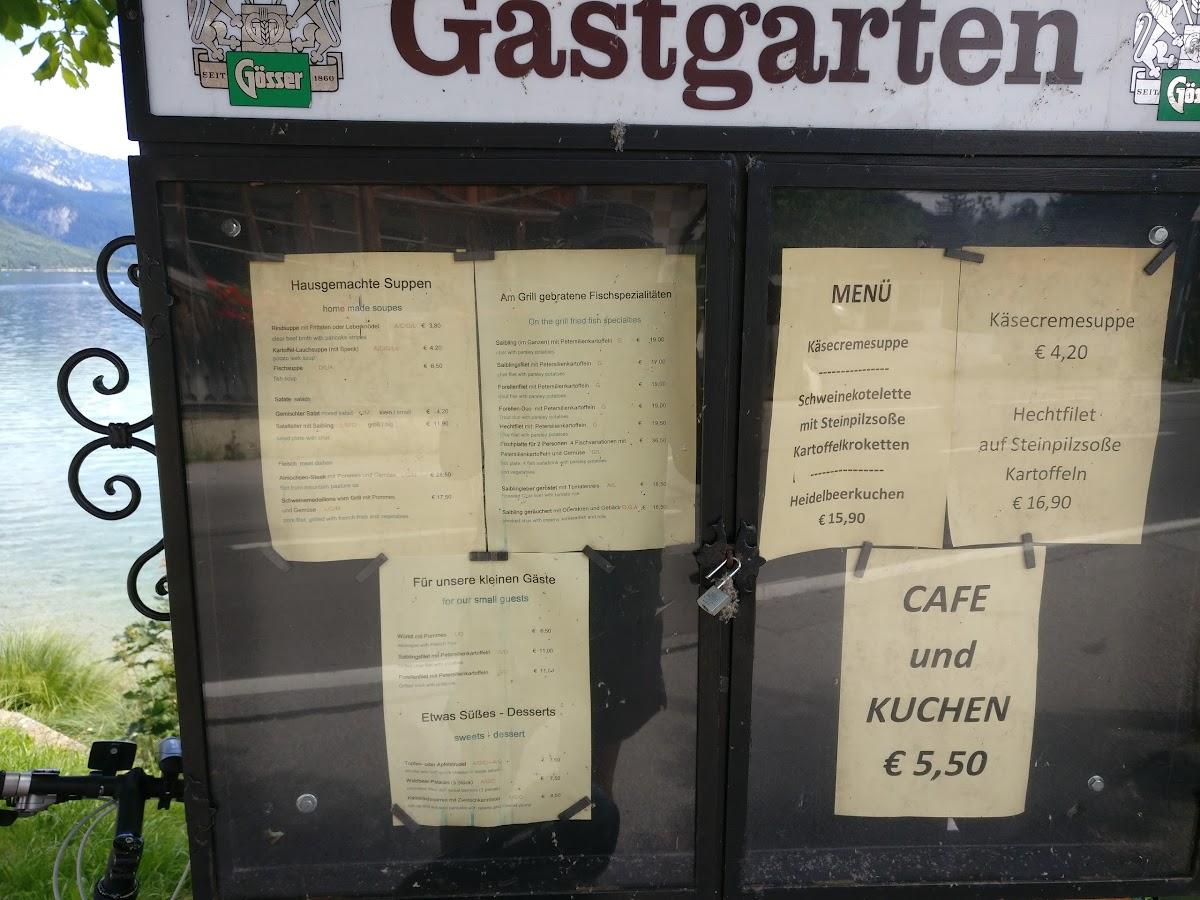 Gastgarten
SEIT 1860
Gösser
SEIT
Gös
Hausgemachte Suppen
home made soupes
Rindsuppe mit Frittaten oder Leberknödel A/C/G/L € 3,80
clear beef broth with pancake stripes
Kartoffel-Lauchsuppe (mit Speck) € 4,20
potato leek soup
Fischsuppe D/L/A € 6,50
fish soup
Salate salads
Gemischter Salat mixed salad klein / small € 4,20
Salatteller mit Saibling groß / big € 11,90
salad plate with char
Fleisch meat dishes
Almochsen-Steak mit Pommes und Gemüse € 24,50
Schweinemedaillons vom Grill mit Pommes € 17,50
und Gemüse
pork filet, grilled with french fries and vegetables
Am Grill gebratene Fischspezialitäten
On the grill fried fish specialties
Saibling (im Ganzen) mit Petersilienkartoffeln G € 19,00
char with parsley potatoes
Saiblingsfilet mit Petersilienkartoffeln G € 19,00
char filet with parsley potatoes
Forellenfilet mit Petersilienkartoffeln G € 19,00
Forellen-Duo mit Petersilienkartoffeln G € 19,00
Trout duo with parsley potatoes
Hechtfilet mit Petersilienkartoffeln G € 19,50
filet with parsley potatoes
Fischplatte für 2 Personen 4 Fischvariationen mit €
Petersilienkartoffeln und Gemüse
fish plate, 4 fish variations with parsley potatoes
and vegetables
Saiblingleber geröstet mit Tomatenreis €
Saibling geräuchert mit Oberskren und Gebäck D,G,A €
Für unsere kleinen Gäste
for our small guests
Würstl mit Pommes € 6,50
Saiblingsfilet mit Petersilienkartoffeln € 11,00
Forellenfilet mit Petersilienkartoffeln € 11,00
Etwas Süßes - Desserts
sweets - dessert
Topfen- oder Apfelstrudel
Waldbeer-Palatschinken
MENÜ
Käsecremesuppe
----------------
Schweinekotelette
mit Steinpilzsoße
Kartoffelkroketten
----------------
Heidelbeerkuchen
€ 15,90
Käsecremesuppe
€ 4,20
Hechtfilet
auf Steinpilzsoße
Kartoffeln
€ 16,90
CAFE
und
KUCHEN
€ 5,50